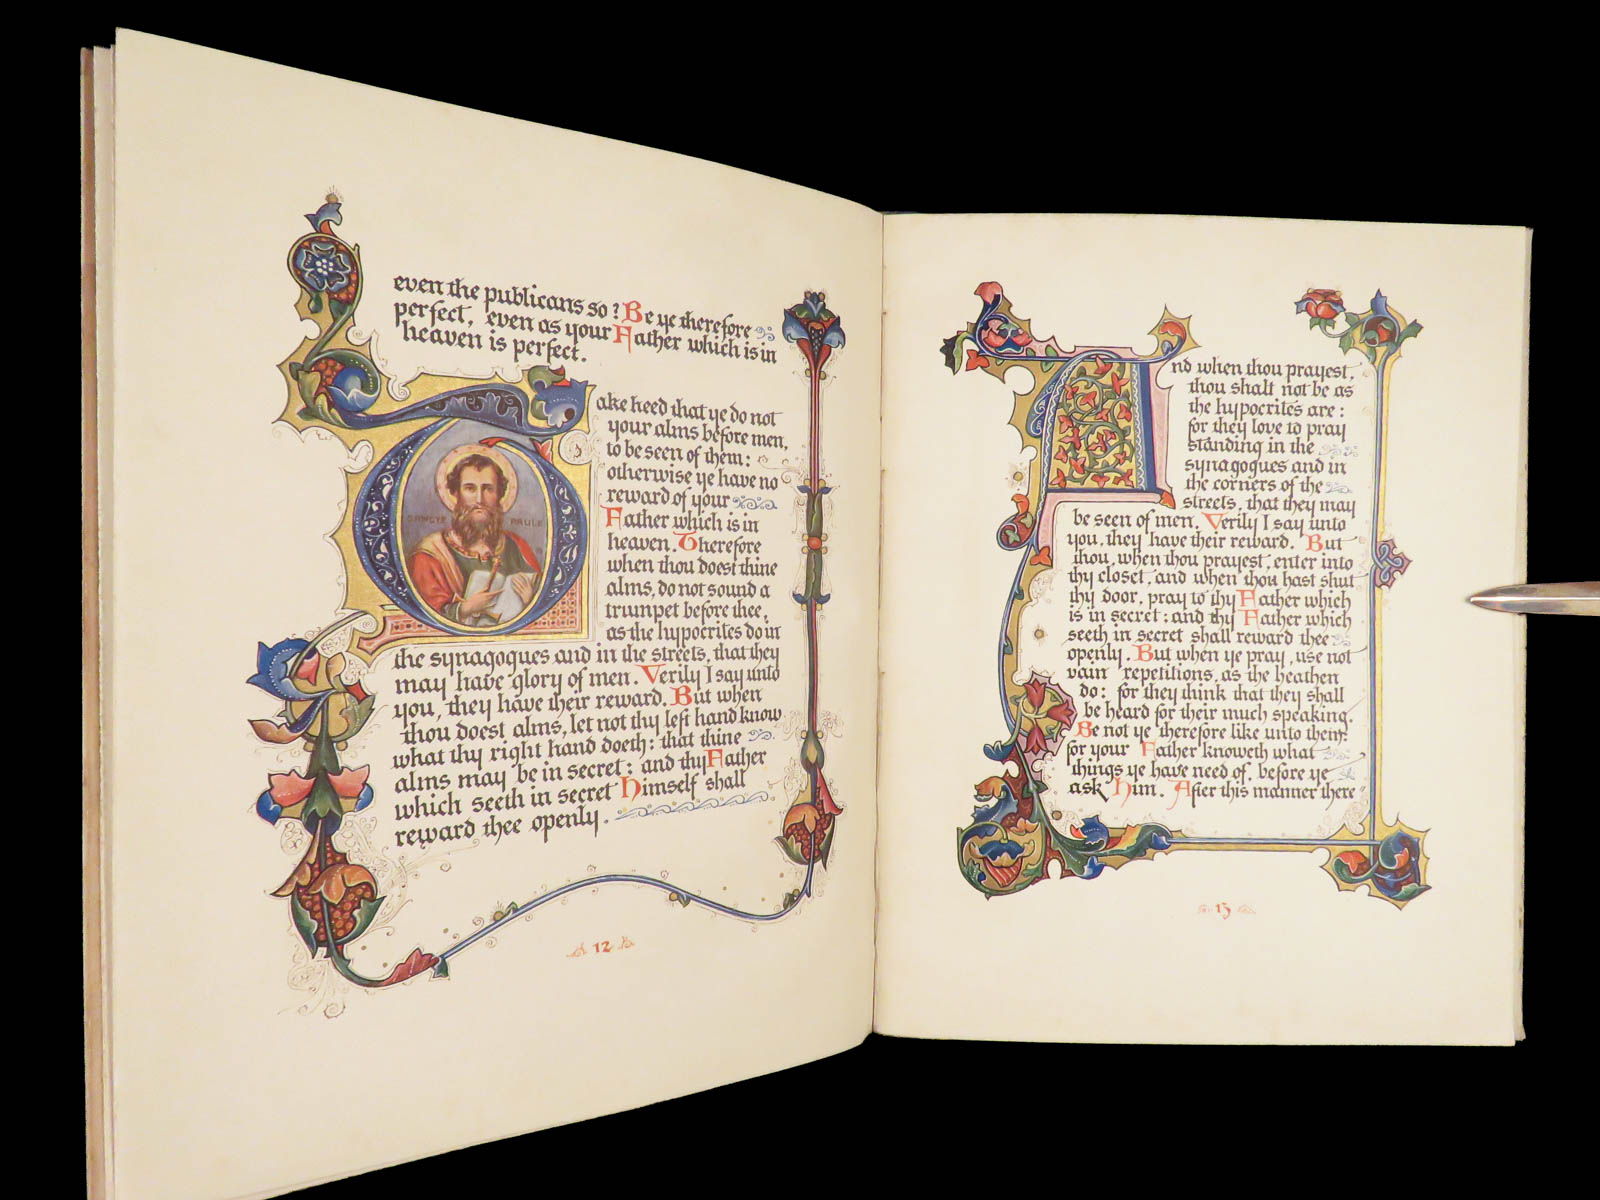 even the publicans so? Be ye therefore
perfect, even as your Father which is in
heaven is perfect.
Take heed that ye do not
your alms before men,
to be seen of them:
otherwise ye have no
reward of your
Father which is in
heaven. Therefore
when thou doest thine
alms, do not sound a
trumpet before thee,
as the hypocrites do in
the synagogues and in the streets, that they
may have glory of men. Verily I say unto
you, they have their reward. But when
thou doest alms, let not thy left hand know
what thy right hand doeth: that thine
alms may be in secret: and thy Father
which seeth in secret Himself shall
reward thee openly.
SANCTE PAULE
12
And when thou prayest,
thou shalt not be as
the hypocrites are:
for they love to pray
standing in the
synagogues and in
the corners of the
streets, that they may
be seen of men. Verily I say unto
you, they have their reward. But
thou, when thou prayest, enter into
thy closet, and when thou hast shut
thy door, pray to thy Father which
is in secret: and thy Father which
seeth in secret shall reward thee
openly. But when ye pray, use not
vain repetitions, as the heathen
do: for they think that they shall
be heard for their much speaking.
Be not ye therefore like unto them:
for your Father knoweth what
things ye have need of, before ye
ask Him. After this manner there
13